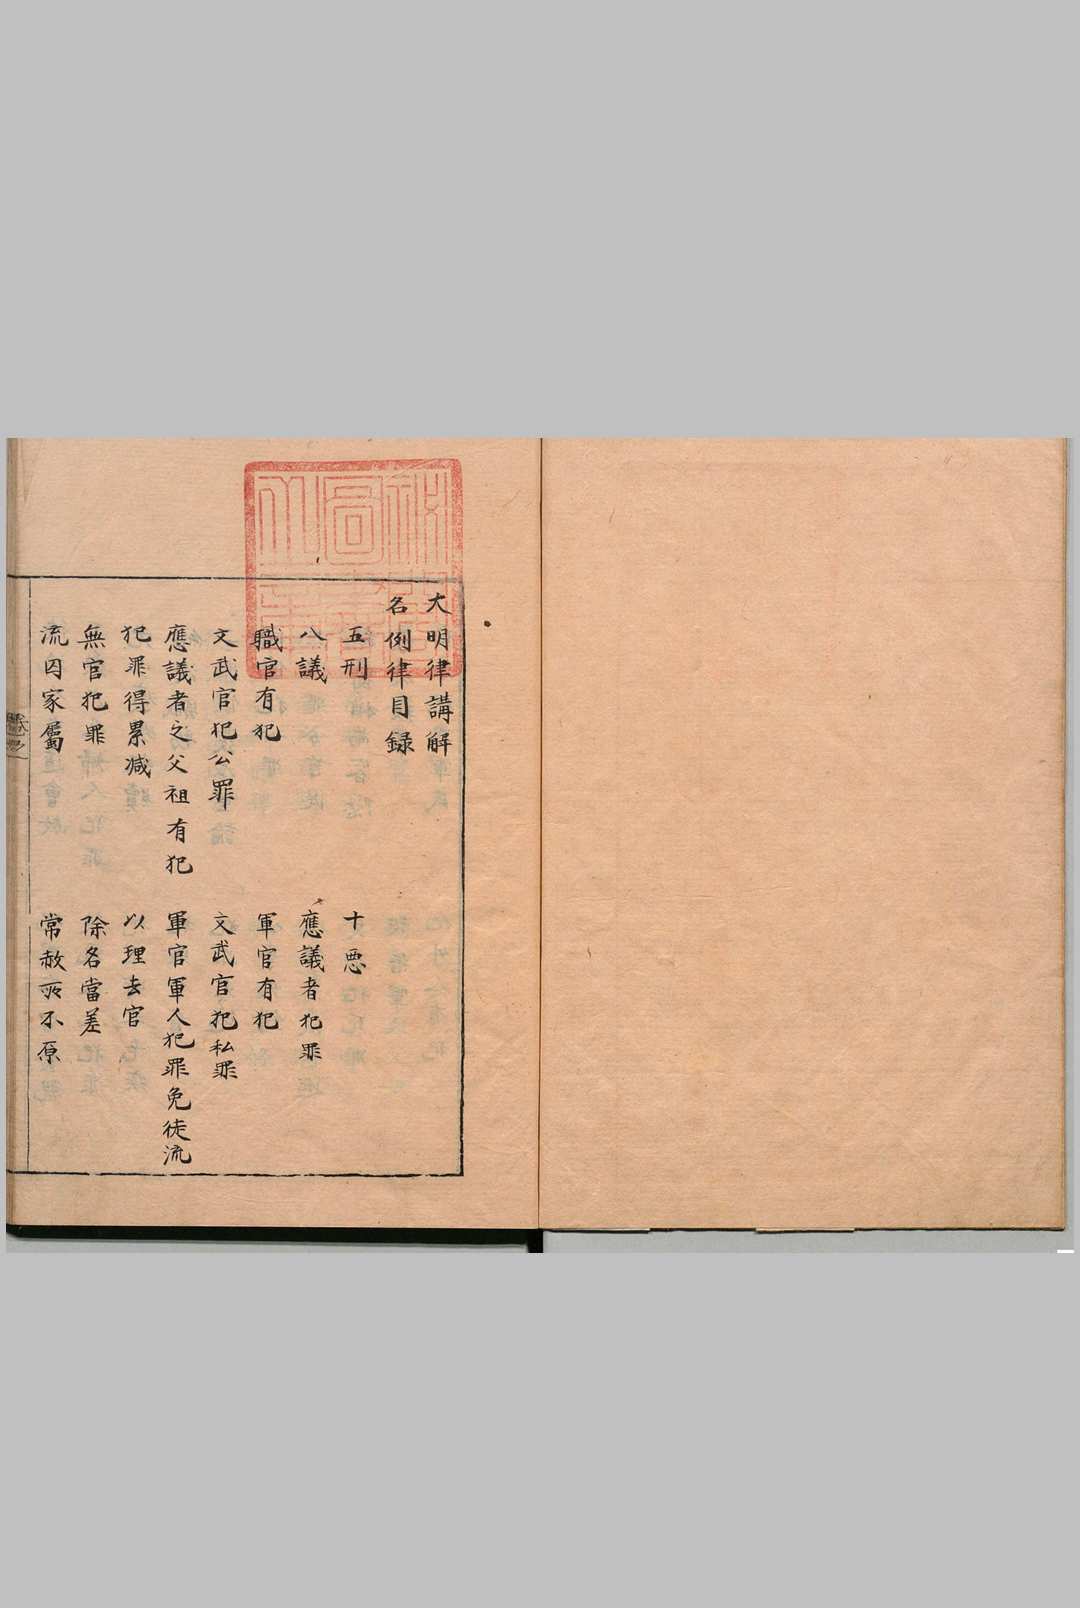 大明律講解
名例律目録
五刑
十惡
八議
應議者犯罪
職官有犯
軍官有犯
文武官犯公罪
文武官犯私罪
應議者之父祖有犯
軍官軍人犯罪免徒流
犯罪得累減
以理去官
無官犯罪
除名當差
流囚家屬
常赦所不原